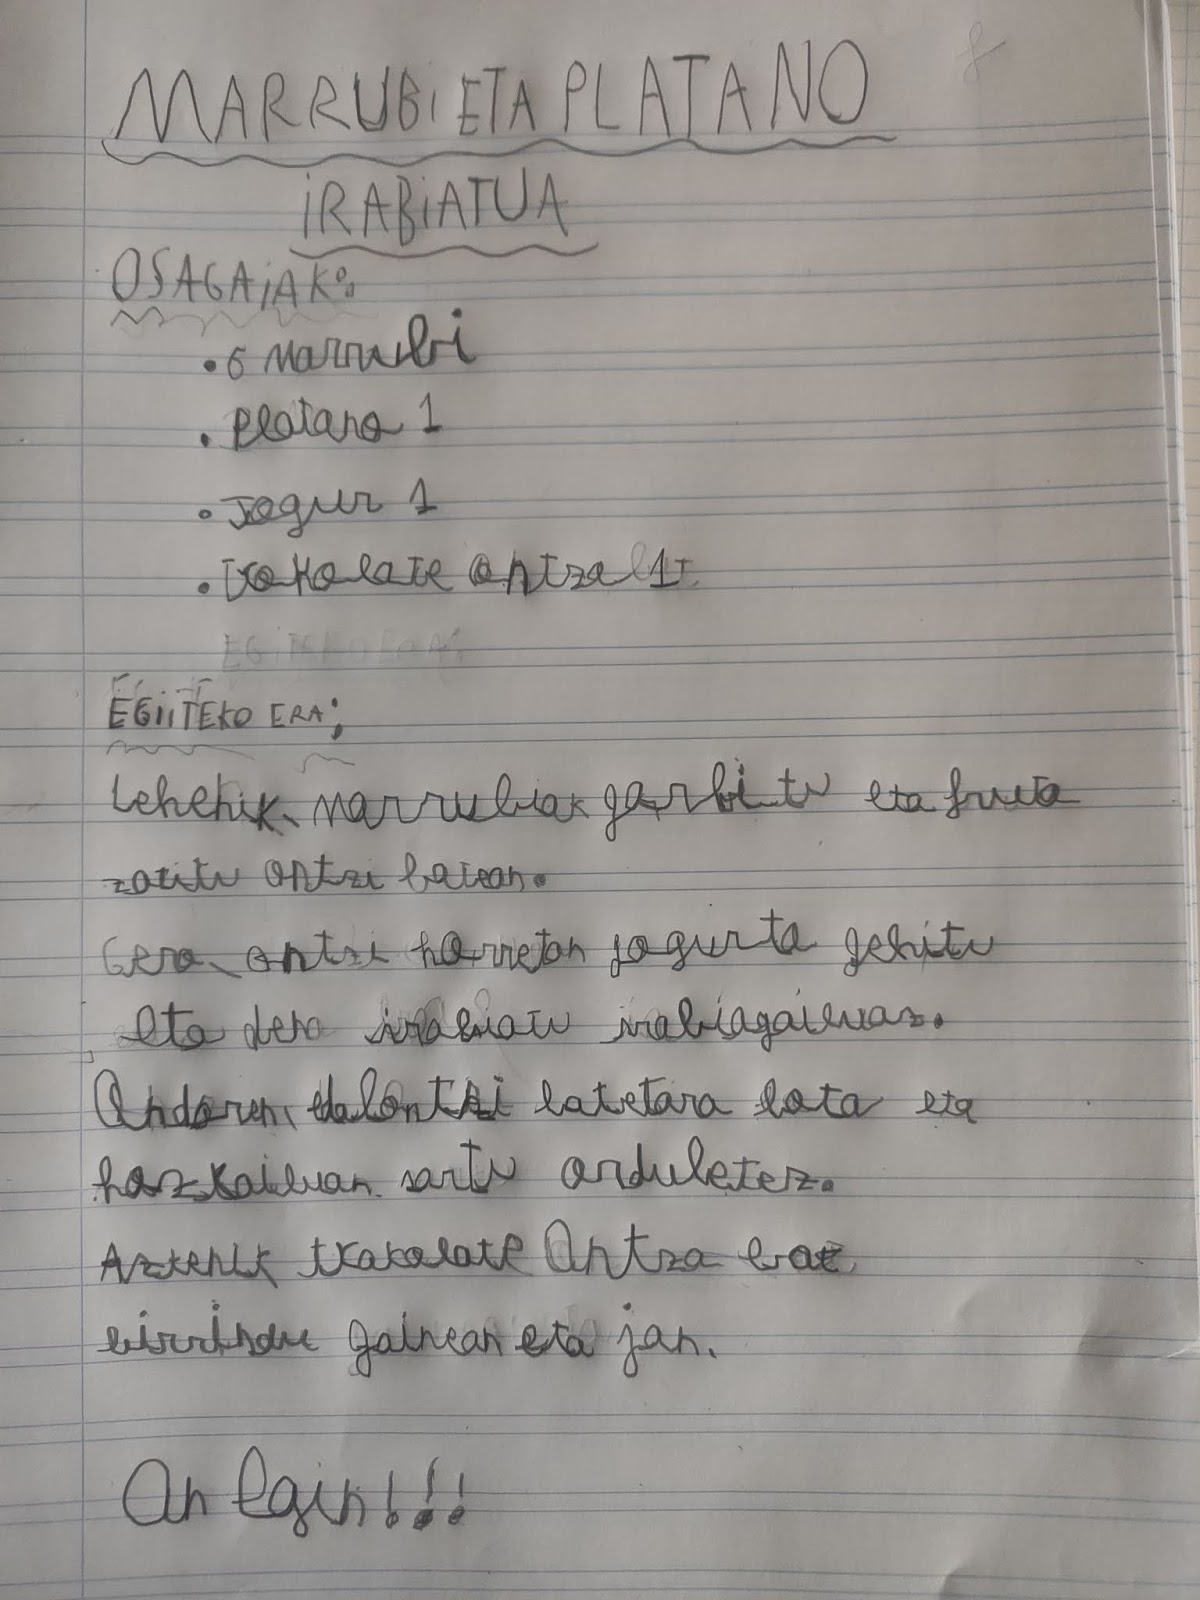 MARRUBI ETA PLATANO
IRABIATUA
OSAGAIAK:
• 6 Marrubi
• platano 1
• Jogur 1
• txokolate ontza 1
EGITEKO ERA:
EGIITEKO ERA:
Lehenik, marrubiak garbitu eta fruta
zatitu ontzi batean.
Gero, ontzi horretan jogurta gehitu
eta dena irabiatu irabiagailuaz.
Ondoren, edalontzi batetara bota eta
hozkailuan sartu ordubetez.
Aztenik txokolate ontza bat
birrindu gainean eta jan.
On Egin!!!